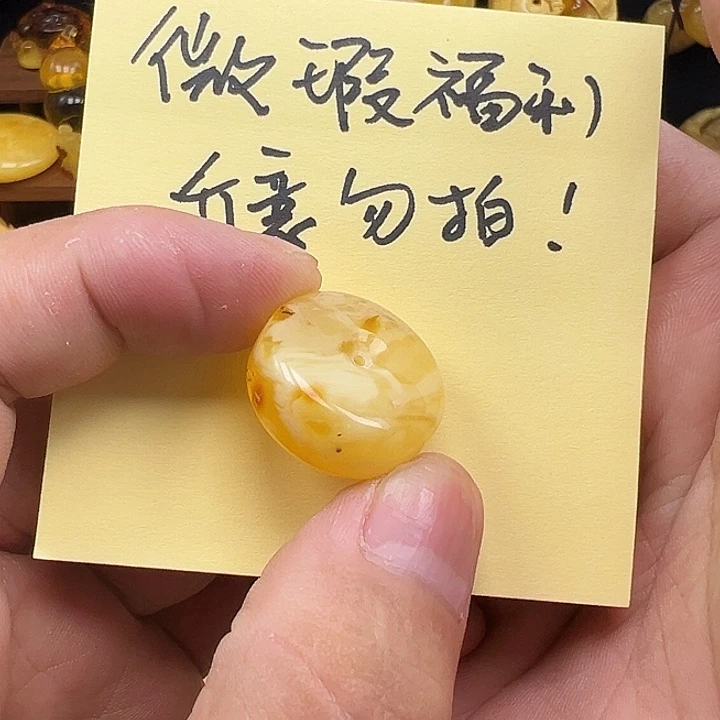 微瑕福利
介意勿拍！